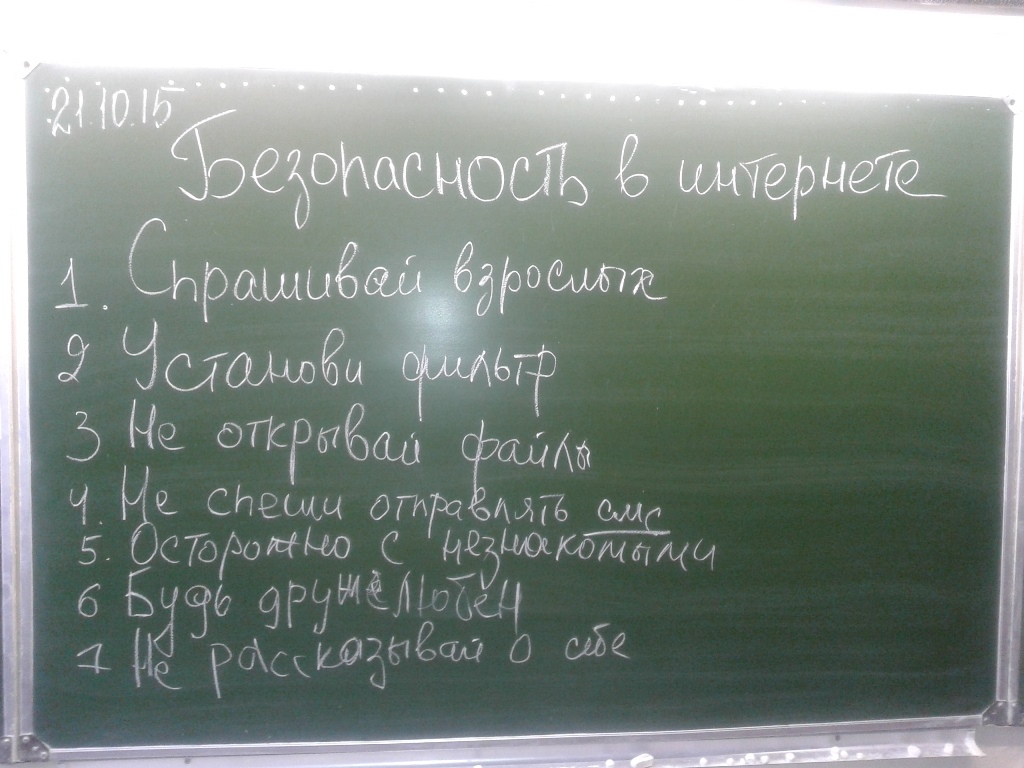 21.10.15
Безопасность в интернете
1. Спрашивай взрослых
2 Установи фильтр
3 Не открывай файлы
4. Не спеши отправлять смс
5. Осторожно с незнакомыми
6 Будь дружелюбен
7 Не рассказывай о себе